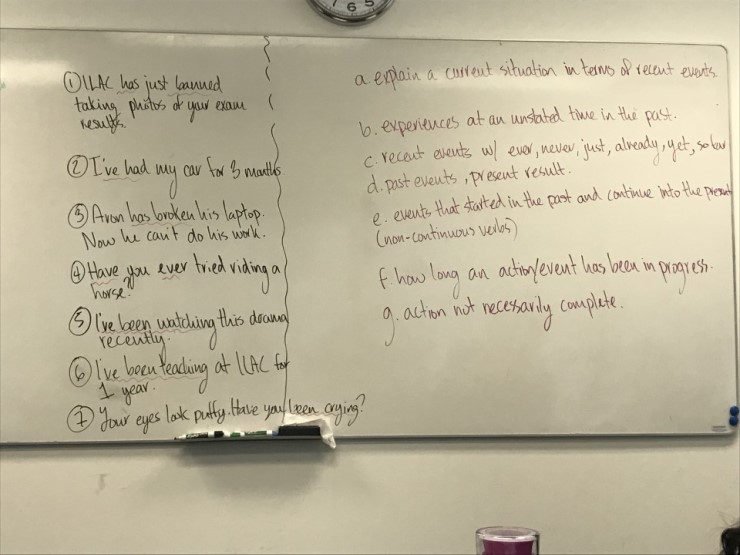 7 6 5
① ILAC has just banned
taking photos of your exam
results.
② I've had my car for 3 months
③ Avon has broken his laptop.
Now he can't do his work.
④ Have you ever tried riding a
horse?
⑤ I've been watching this drama
recently.
⑥ I've been teaching at ILAC for
1 year.
⑦ Your eyes look puffy. Have you been crying?
a. explain a current situation in terms of recent events.
b. experiences at an unstated time in the past.
c. recent events w/ ever, never, just, already, yet, so far
d. past events, present result.
e. events that started in the past and continue into the present
(non-continuous verbs)
f. how long an action/event has been in progress.
g. action not necessarily complete.